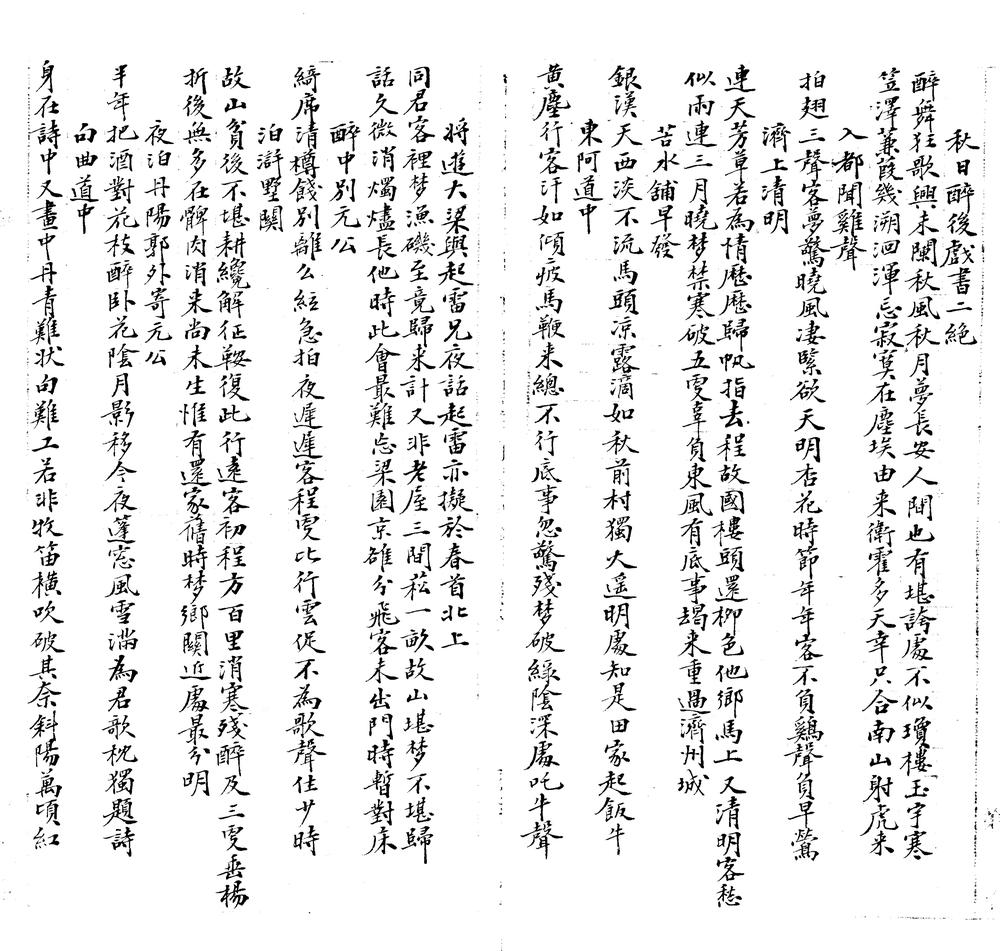 秋日醉後戲書二絕
醉舞狂歌興未闌秋風秋月夢長安人間也有堪誇處不似瓊樓玉宇寒
笠澤蒹葭幾溯洄渾忘寂寞在塵埃由来衛霍多天幸只合南山射虎来
入都聞雞聲
拍翅三聲客夢驚曉風凄緊欲天明杏花時節年年客不負鷄聲負早鶯
濟上清明
連天芳草若為情歷歷歸帆指去程故國樓頭還柳色他鄉馬上又清明客愁
似雨連三月曉梦禁寒破五更辜負東風有底事朅来重過濟州城
苦水舖早發
銀漢天西淡不流馬頭凉露滴如秋前村獨火遥明處知是田家起飯牛
東阿道中
黄塵行客汗如傾疲馬鞭来總不行底事忽驚殘梦破綠陰深處叱牛聲
將進大梁與起雷兄夜話起雷亦擬於春首北上
同君客裡梦漁磯至竟歸来計又非老屋三間菘一畝故山堪梦不堪歸
話久微消燭燼長他時此會最難忘梁園京雒分飛客未出門時暫對床
醉中別元公
綺席清樽餞別離么絃急拍夜遲遲客程更比行雲促不為歌聲住少時
泊滸墅關
故山貧後不堪耕纔解征鞍復此行遠客初程方百里消寒殘醉及三更垂楊
折後無多在髀肉消来尚未生惟有還家舊時梦鄉關近處最分明
夜泊丹陽郭外寄元公
半年把酒對花枝醉卧花陰月影移今夜蓬窓風雪滿為君歌枕獨題詩
句曲道中
身在詩中又畫中丹青難状句難工若非牧笛橫吹破其奈斜陽萬頃紅